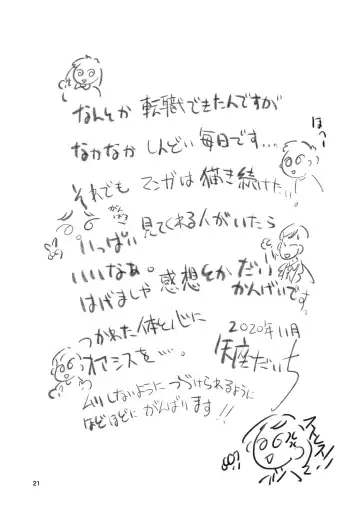 なんとか 転職できたんですが
なかなか しんどい 毎日です…
は〜
それでも マンガは 描き続けたい!
いっぱい 見てくれる人がいたら
いいなぁ。
はげましや 感想とか だい
かんげいです。
つかれた 体と心に
オアシスを…。
2020年11月
ムリしないように つづけられるように
ほどほどに がんばります!!
21